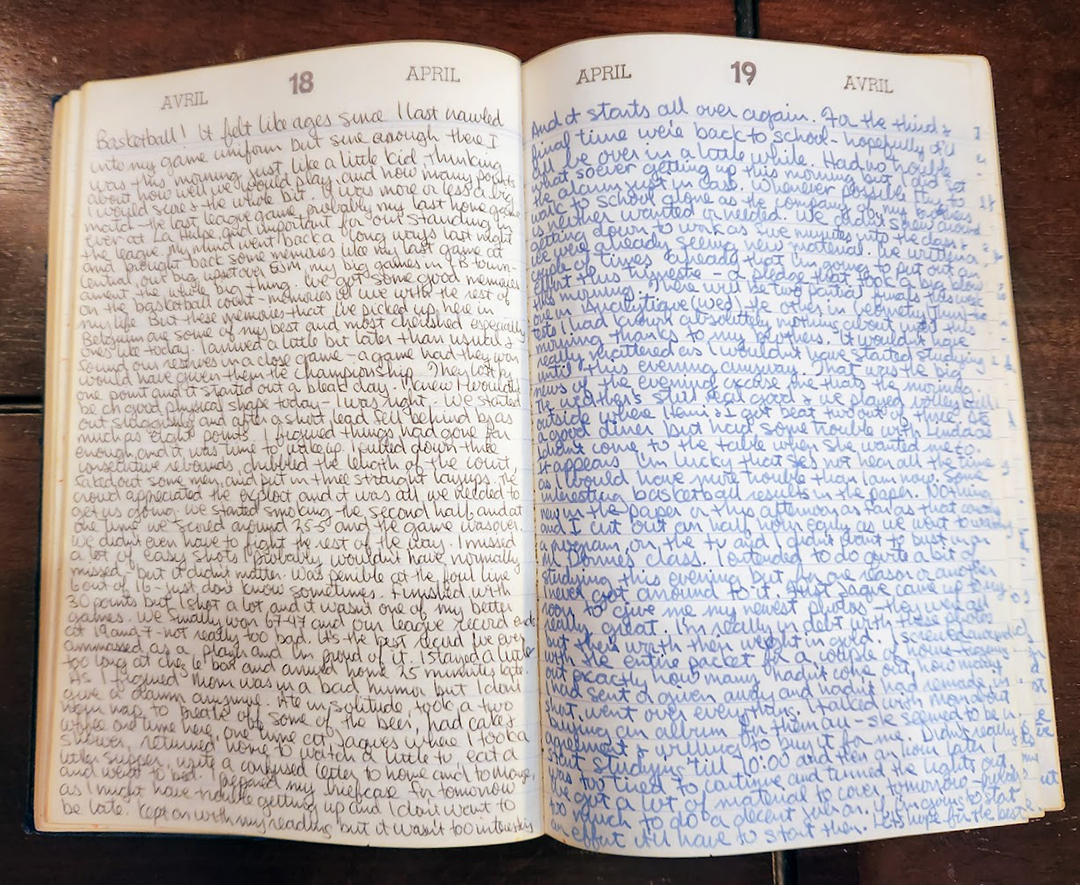 AVRIL 18 APRIL
Basketball! It felt like ages since I last crawled
into my game uniform but sure enough there I
was this morning just like a little kid thinking
about how well we would play and how many points
I would score the whole bit. It was more or less a big
match - the last league game, probably my last home game
ever at La Hulpe and important for our standing in
the league. My mind went back a long ways last night
and brought back some memories like my last game at
Central, our big upset over my big games in the town-
ament the whole big thing. We got some good memories
on the basketball court - memories I'll live with the rest of
my life. But these memories that I've picked up here in
Belgium are some of my best and most cherished especially
ones like today. I arrived a little bit later than usual &
found our reserves in a close game - a game had they won
would have given them the championship. They lost by
one point and it started out a bleak day. I knew I wouldn't
be in good physical shape today - I was right. We started
out sluggishly and after a short lead fell behind by as
much as eight points. I figured things had gone far
enough and it was time to wake up. I pulled down three
consecutive rebounds, dribbled the length of the court,
faked out some men, and put in three straight layups. The
crowd appreciated the exploit and it was all we needed to
get us going. We started smoking the second half and at
one time we scored around 25-5 and the game was over
we didn't even have to fight the rest of the way. I missed
a lot of easy shots I probably wouldn't have normally
missed, but it didn't matter. Was penible at the foul line
6 out of 16 - just don't know sometimes. Finished with
30 points but I shot a lot and it wasn't one of my better
games. We finally won 67-47 and our league record ends
at 19 and 7 - not really too bad. It's the best record I've ever
ammassed as a player and I'm proud of it. I stayed a little
too long at the box and arrived home 25 minutes late.
As I figured Mom was in a bad humor but I don't
give a damn anymore. Ate in solitude, took a two
hour nap to sleep off some of the beer, had cakes
where one time here, one time at Jaques where I took a
shower, returned home to watch a little tv eat a
little supper, write a confused letter to home and to
and went to bed. I prepared my briefcase for tomorrow
as I might have trouble getting up and I don't want to
be late. Kept on with my reading but it wasn't too interesting
APRIL 19 AVRIL
And it starts all over again. For the third &
final time we're back to school - hopefully it'll
all be over in a little while. Had no trouble
what soever getting up this morning but I did set
the alarm just in case. Whenever possible I try to
walk to school alone as the company of my brothers
is neither wanted or needed. We don't screw around
getting down to work as five minutes into the class
we were already seeing new material. I've written a
couple of times already that I'm going to put out an
effort this trimestre - a pledge that took a big blow
this morning. There will be two partial finals this week
one in Analytique (wed) & the other in Geometry (thurs)
tests I had known absolutely nothing about until this
morning thanks to my brothers. It wouldn't have
really mattered as I wouldn't have started studying
until this evening anyway. That was the big
news of the evening excuse me that's the morning.
The weather's still real good & we played volley ball
outside where Henri & I got beat two out of three. Ate
a good diner but had some trouble with Linda as
I didn't come to the table when she wanted me to.
It appears I'm lucky that she's not here all the time
as I would have more trouble than I am now. Some
interesting basketball results in the paper. Nothing
new in the paper or this afternoon as far as that
and I cut out an half hour early as we went to
a program on the tv and I didn't want to bust in on
class. I intended to do quite a bit of
studying this evening but for one reason or another
never got around to it. First Jaque came up to my
room to give me my newest photos - they were all
really great. I'm really in debt with these photos
but they're worth their weight in gold. I screwed around
with the entire packet for a couple of hours
out exactly how many hadn't come out, how many
I had sent & given away and hadn't had remade in
short, went over everything. I talked with mom about
buying an album for them all - she seemed to be in
agreement & willing to buy it for me. Didn't really
start studying till 10:00 and then an hour later I
was too tired to continue and turned the lights out.
We got a lot of material to cover tomorrow
to much to do a decent job on. If I'm going to start
an effort it'll have to start then. Let's hope for the best.